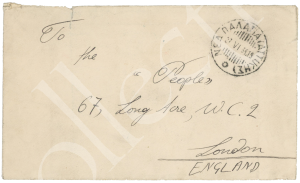 To
the
"People"
67, Long Acre, W.C.2
London
ENGLAND